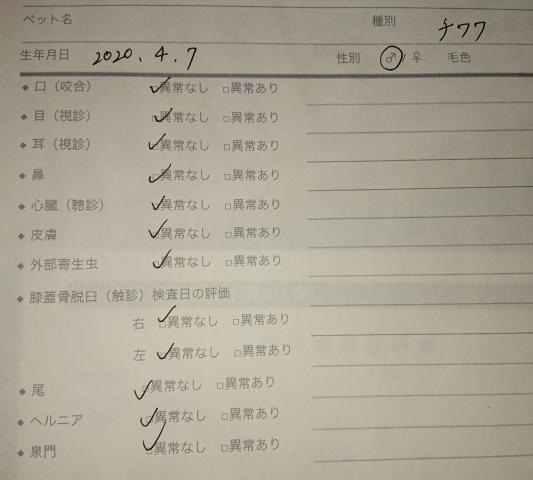 ペット名 種別 チワワ
生年月日 2020.4.7 性別 ♂/♀ 毛色
◆ 口（咬合） ☑異常なし □異常あり
◆ 目（視診） ☑異常なし □異常あり
◆ 耳（視診） ☑異常なし □異常あり
◆ 鼻 ☑異常なし □異常あり
◆ 心臓（聴診） ☑異常なし □異常あり
◆ 皮膚 ☑異常なし □異常あり
◆ 外部寄生虫 ☑異常なし □異常あり
◆ 膝蓋骨脱臼（触診）検査日の評価
右 ☑異常なし □異常あり
左 ☑異常なし □異常あり
◆ 尾 ☑異常なし □異常あり
◆ ヘルニア ☑異常なし □異常あり
◆ 泉門 ☑異常なし □異常あり